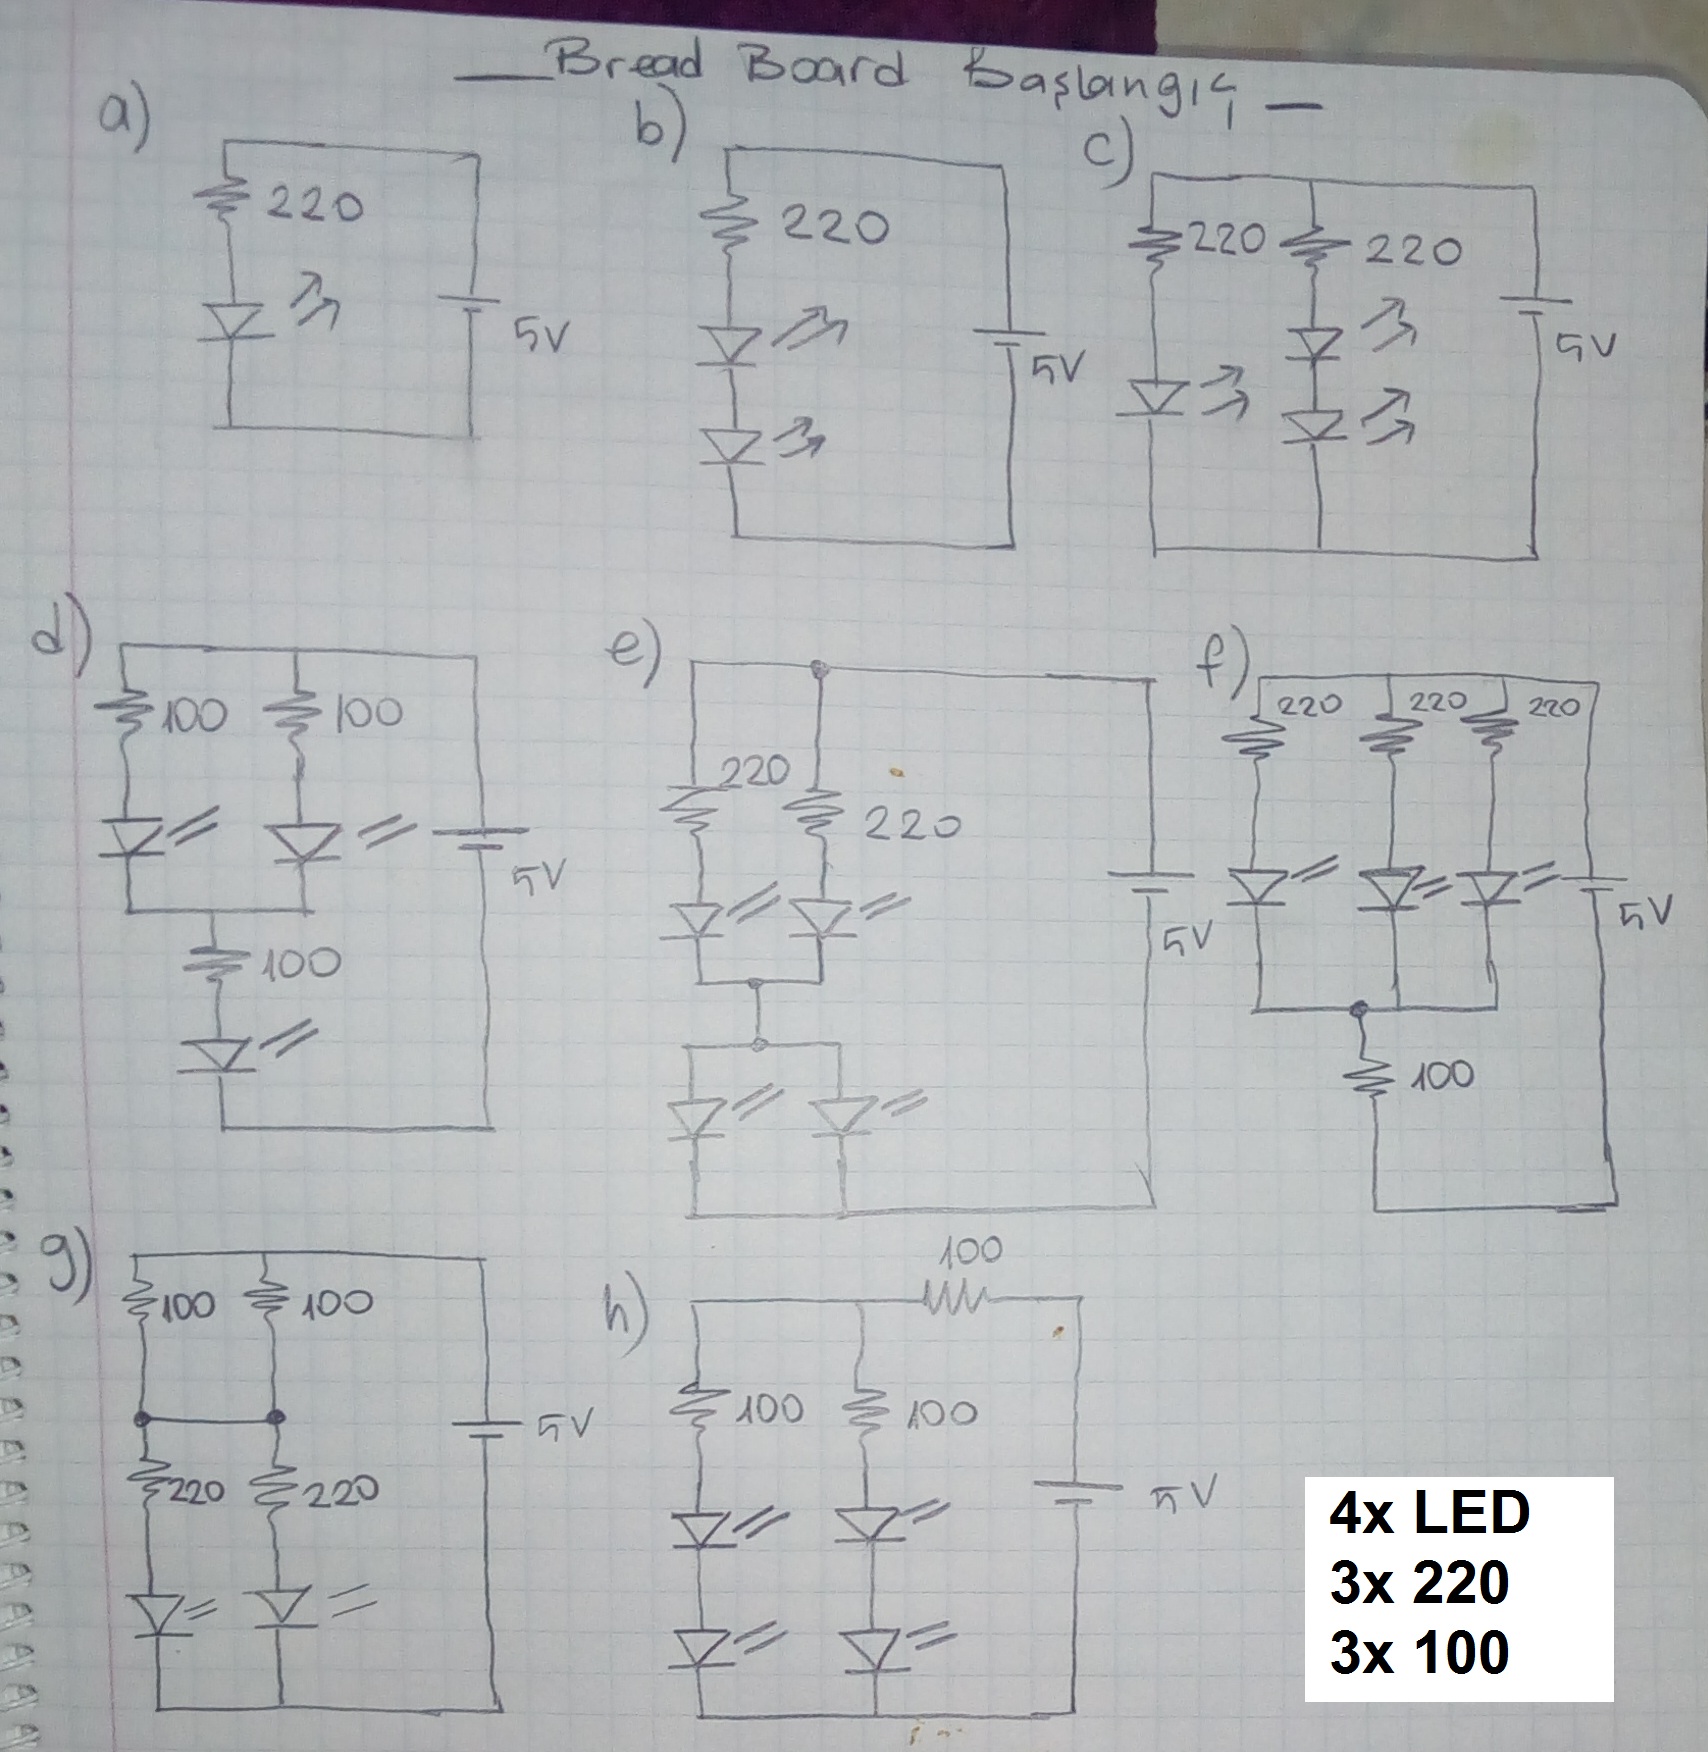 Bread Board Başlangıç
a)
220
5V
b)
220
5V
c)
220
220
5V
d)
100
100
5V
100
e)
220
220
5V
f)
220
220
220
5V
100
g)
100
100
5V
220
220
h)
100
100
100
5V
4x LED
3x 220
3x 100